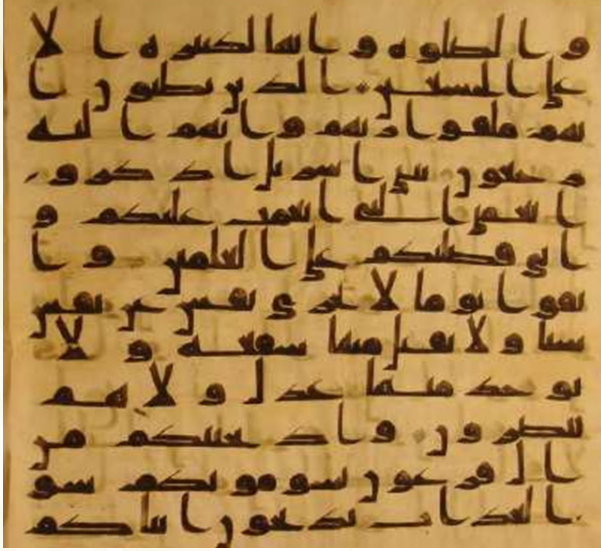 و الصلوه و انها لكبيره الا
على الخشعين الذين يظنون ا
نهم ملقوا ربهم و انهم اليه
رجعون يبنى اسريل اذكرو
ا نعمتى التى انعمت عليكم و
انى فضلتكم على العلمين و ا
تقوا يوما لا تجزى نفس عن نفس
شيا و لا يقبل منها شفعه و لا
يوخذ منها عدل و لا هم
ينصرون و اذ نجينكم من
ال فرعون يسومونكم سو
العذاب يذبحون ابناكم